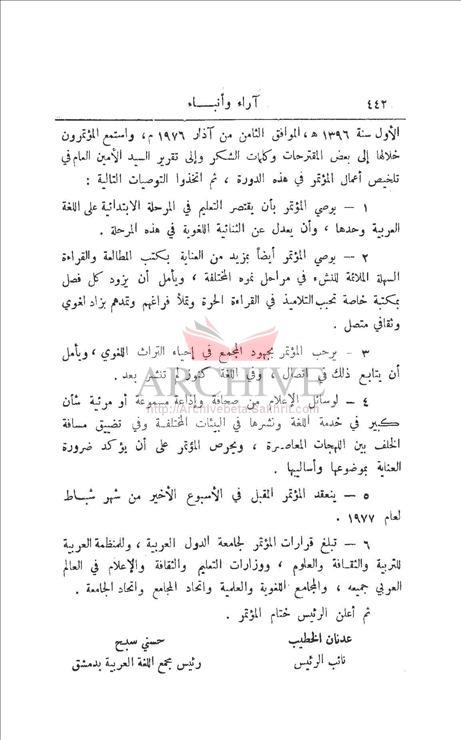 ٤٤٢ آراء وأنبـــاء
الأول سنة ١٣٩٦ هـ، الموافق الثامن من آذار ١٩٧٦ م، واستمع المؤتمرون
خلالها إلى بعض المقترحات وكلمات الشكر وإلى تقرير السيد الأمين العام في
تلخيص أعمال المؤتمر في هذه الدورة ، ثم اتخذوا التوصيات التالية :
١ — يوصي المؤتمر بأن يقتصر التعليم في المرحلة الابتدائية على اللغة
العربية وحدها ، وأن يعدل عن الثنائية اللغوية في هذه المرحلة .
٢ — يوصي المؤتمر أيضاً بمزيد من العناية بكتب المطالعة والقراءة
السهلة الملائمة للنشء في مراحل نموه المختلفة ، ويأمل أن يزود كل فصل
بمكتبة خاصة تحبب التلاميذ في القراءة الحرة وتملأ فراغهم وتمدهم بزاد لغوي
وثقافي متصل .
٣ — يرحب المؤتمر بجهود المجمع في إحياء التراث اللغوي ، ويأمل
أن يتابع ذلك في اتصال ، وفي اللغة كنوز لم تنشر بعد .
ARCHIVE
http://Archivebeta.Sakhrit.com
٤ — لوسائل الإعلام من صحافة وإذاعة مسموعة أو مرئية شأن
كبير في خدمة اللغة ونشرها في البيئات المختلفة وفي تضييق مسافة
الخلف بين اللهجات المعاصرة ، ويحرص المؤتمر على أن يؤكد ضرورة
العناية بموضوعها وأساليبها .
٥ — ينعقد المؤتمر المقبل في الأسبوع الأخير من شهر شباط
لعام ١٩٧٧ .
٦ — تبلغ قرارات المؤتمر لجامعة الدول العربية ، وللمنظمة العربية
للتربية والثقافة والعلوم ، ووزارات التعليم والثقافة والإعلام في العالم
العربي جميعه ، والمجامع اللغوية والعلمية واتحاد المجامع واتحاد الجامعة .
ثم أعلن الرئيس ختام المؤتمر .
عدنان الخطيب حسني سبح
نائب الرئيس رئيس مجمع اللغة العربية بدمشق